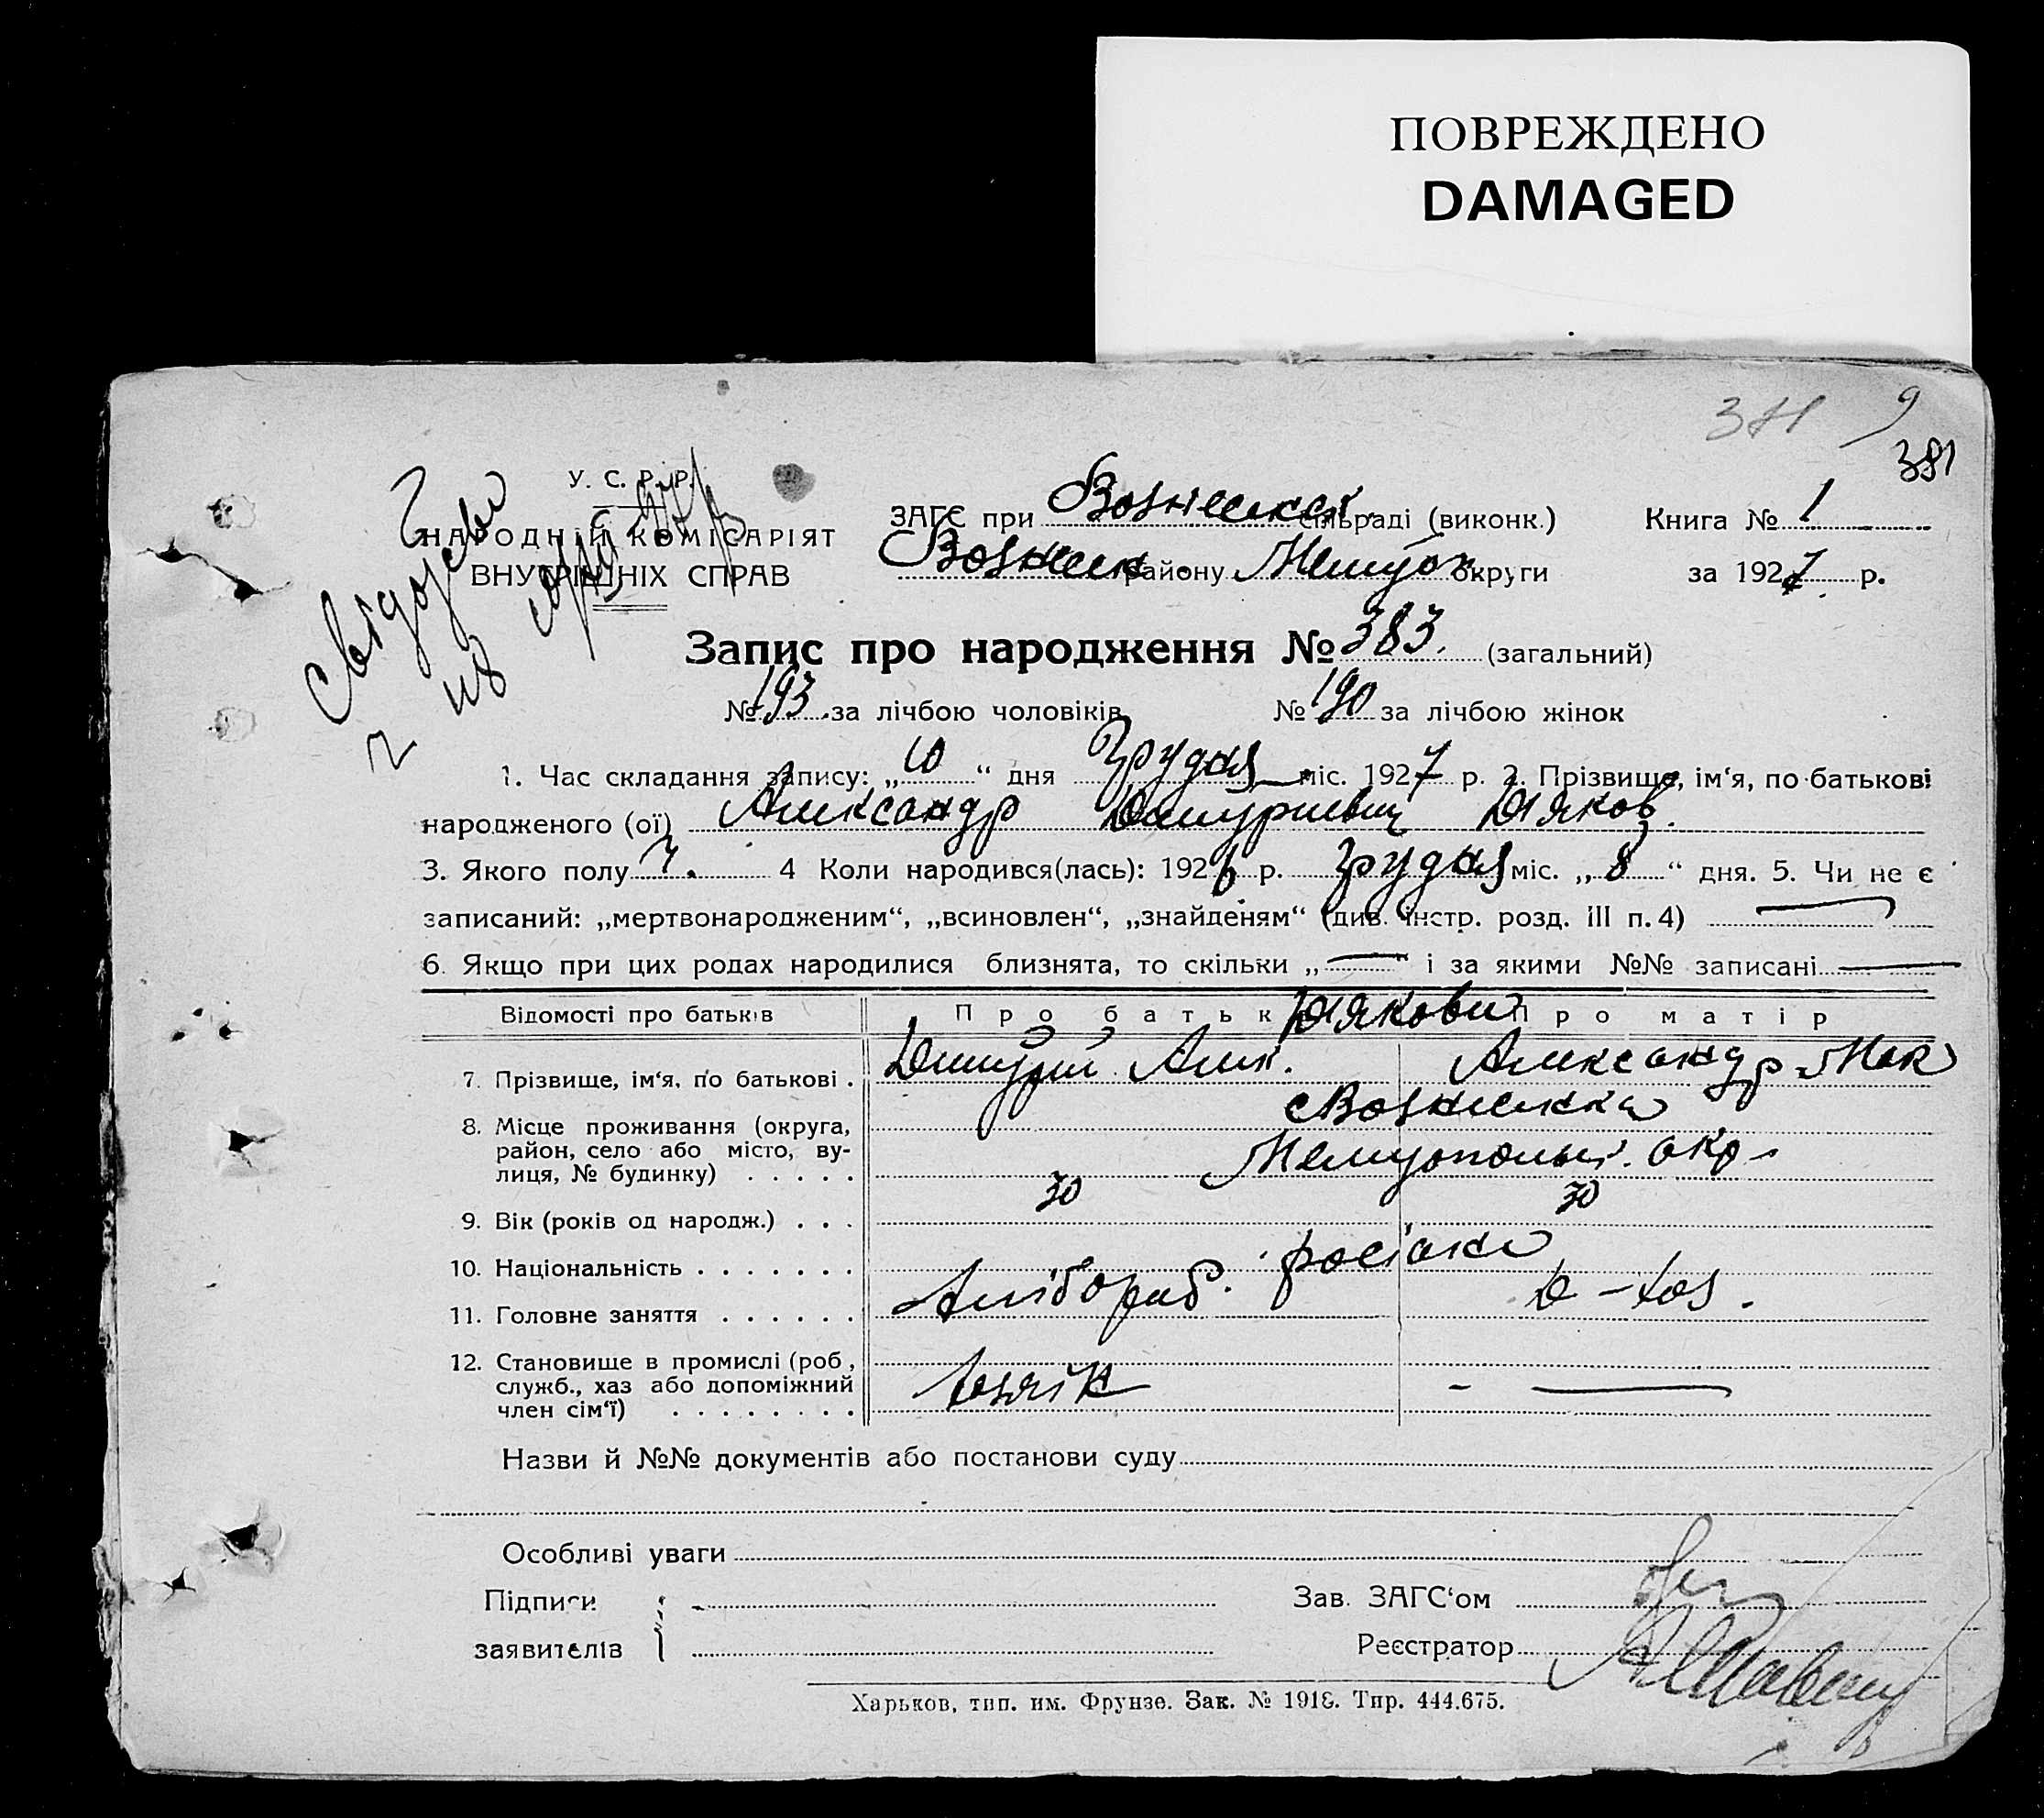 ПОВРЕЖДЕНО
DAMAGED
381
381
У. С. Р. Р.
НАРОДНІЙ КОМІСАРІЯТ
ВНУТРІШНІХ СПРАВ
ЗАГС при Вознесенск. сільраді (виконк.) Книга № 1
Вознесен. району Мелітоп. округи за 1927 р.
Запис про народження № 383. (загальний)
№ 193 за лічбою чоловіків № 190 за лічбою жінок
1. Час складання запису: „ 10 “ дня Грудня міс. 1927 р. 2. Прізвище, ім‘я, по батькові
народженого (ої) Александр Дмитриевич Дяков.
3. Якого полу Ч. 4 Коли народився(лась): 1926 р. грудня міс. „ 8 “ дня. 5. Чи не є
записаний: „мертвонародженим“, „всиновлен“, „знайденям“ (див. інстр. розд. III п. 4)
6. Якщо при цих родах народилися близнята, то скільки „ “ і за якими №№ записані
Відомості про батьків Про батьк Дякови Про матір
7. Прізвище, ім‘я, по батькові . Дмитрий Алек. Александр Мак
8. Місце проживання (округа, Вознесенка
район, село або місто, ву-
лиця, № будинку) . . . . . Мелитопольс. окр.
9. Вік (років од народж.) . . . 30 30
10. Національність . . . . . . . росіяни
11. Головне заняття . . . . . . Хлібороб. Д-хоз.
12. Становище в промислі (роб.,
служб., хаз або допоміжний Хозяїн
член сім‘ї) . . . . . . . .
Назви й №№ документів або постанови суду
Особливі уваги
Підписи Зав. ЗАГС‘ом
заявителів Реєстратор
Харьков, тип. им. Фрунзе. Зак. № 1918. Тир. 444.675.